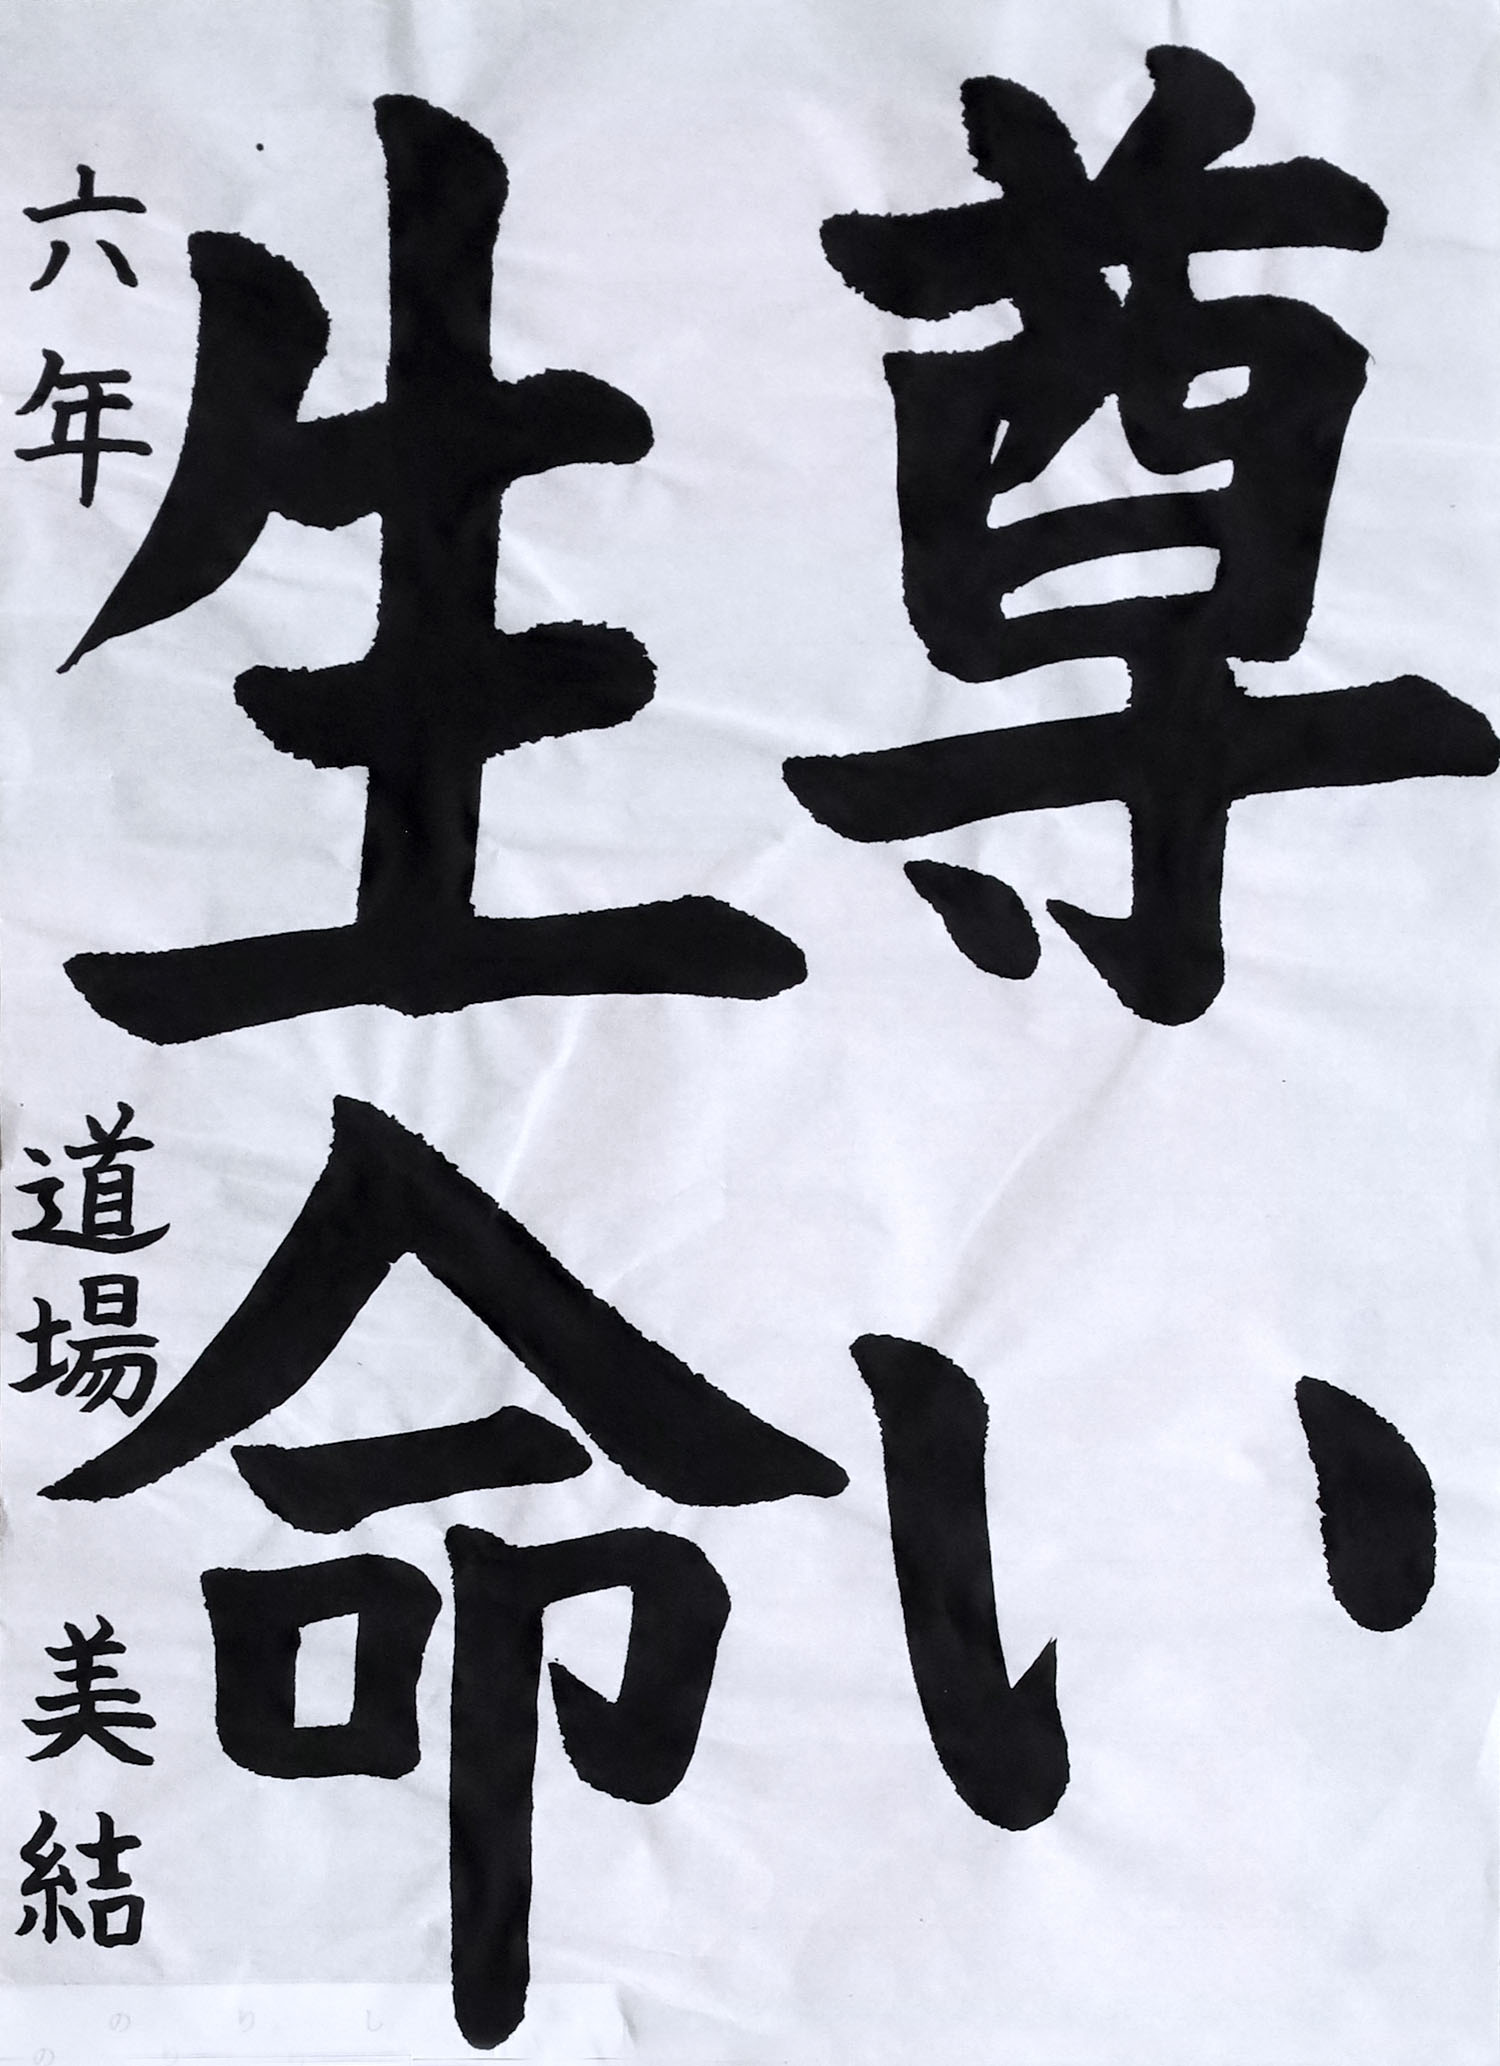 尊い
生命
六年 道場 美結